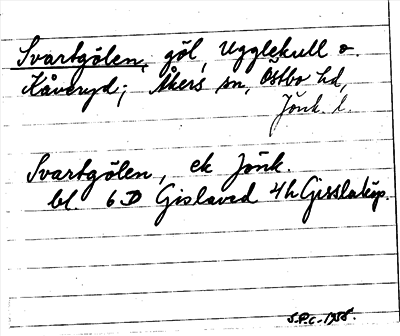 Svartgölen, göl, Ugglekull o.
Kåveryd; Åkers sn, Östbo hd,
Jönk. l.
Svartgölen, ek Jönk.
bl. 6D Gislaved 4h Gisslaköp.
S.P.C. 1958.